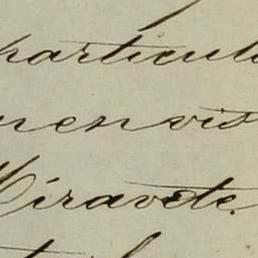 particul
men vio
Miravete.